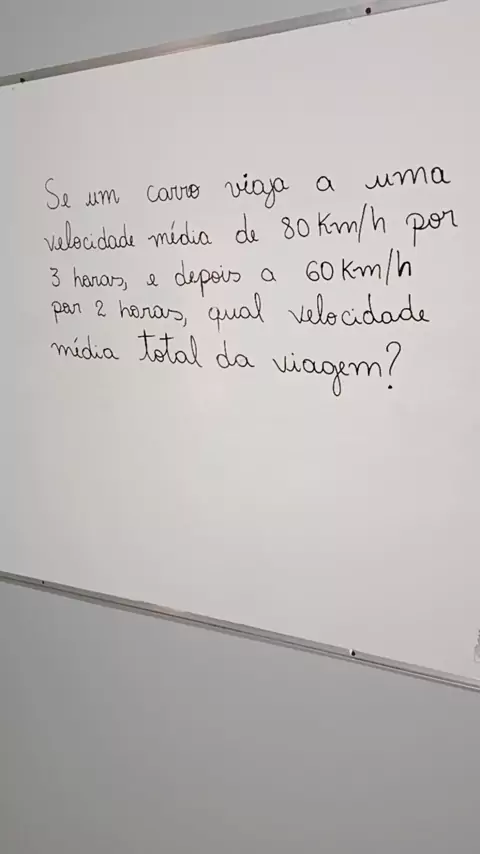 Se um carro viaja a uma
velocidade média de 80 Km/h por
3 horas, e depois a 60 Km/h
por 2 horas, qual velocidade
média total da viagem?